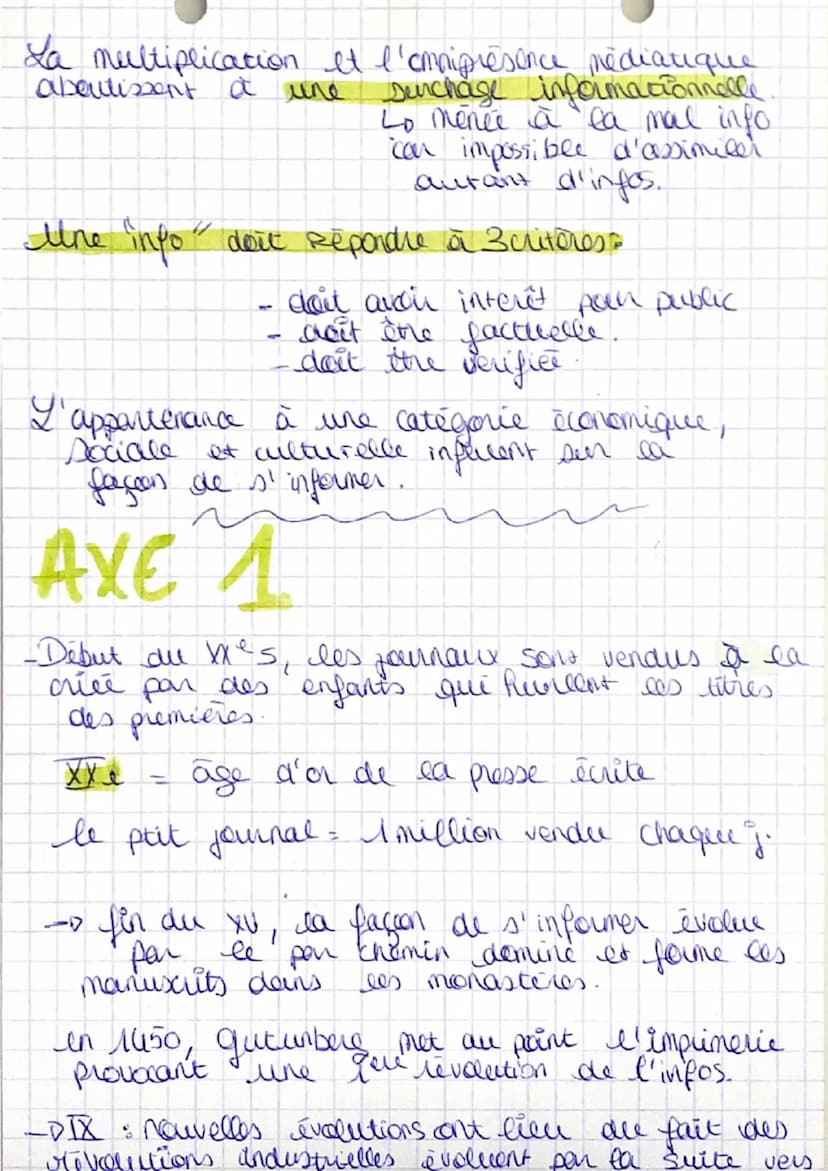 La multiplication et l'omniprésence médiatique
aboutissent à une surchage informationnelle.
↳ menée à la mal info
car impossible d'assimiler
autant d'infos.
Une "info" doit répondre à 3 critères :
- doit avoir interêt pour public
- doit être factuelle.
- doit être vérifiée.
L'appartenance à une catégorie économique,
sociale et culturelle influent sur la
façon de s'informer.
AXE 1
- Début du XXe s, les journaux sont vendus à la
criée par des enfants qui hurlent les titres
des premières.
XXe = âge d'or de la presse écrite
le ptit journal = 1 million vendu chaque j.
→ fin du XV, la façon de s'informer évolue
par le par chemin domine et forme les
manuscrits dans les monastères.
en 1450, Gutunberg met au point l'imprimerie
provocant une révolution de l'infos.
→ IX : nouvelles évolutions ont lieu du fait des
révolutions industrielles évoluent par la suite vers